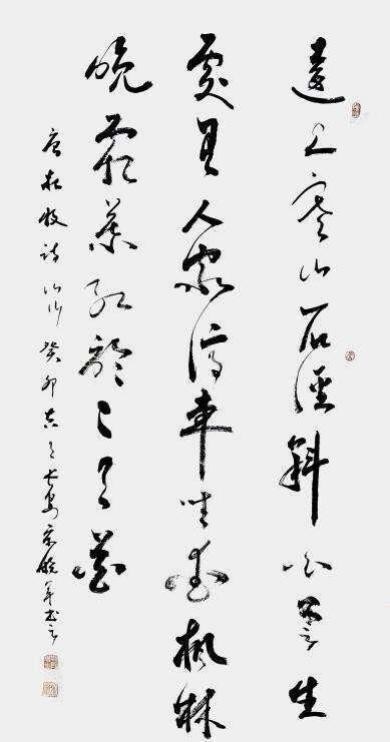 遠上寒山石徑斜白雲生
處有人家停車坐愛枫林
晚霜葉紅於二月花
唐杜牧詩山行癸卯長安軍書